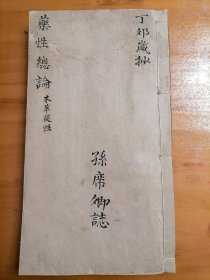 丁卯歲抄
孫席卿誌
藥性總論
本草從性